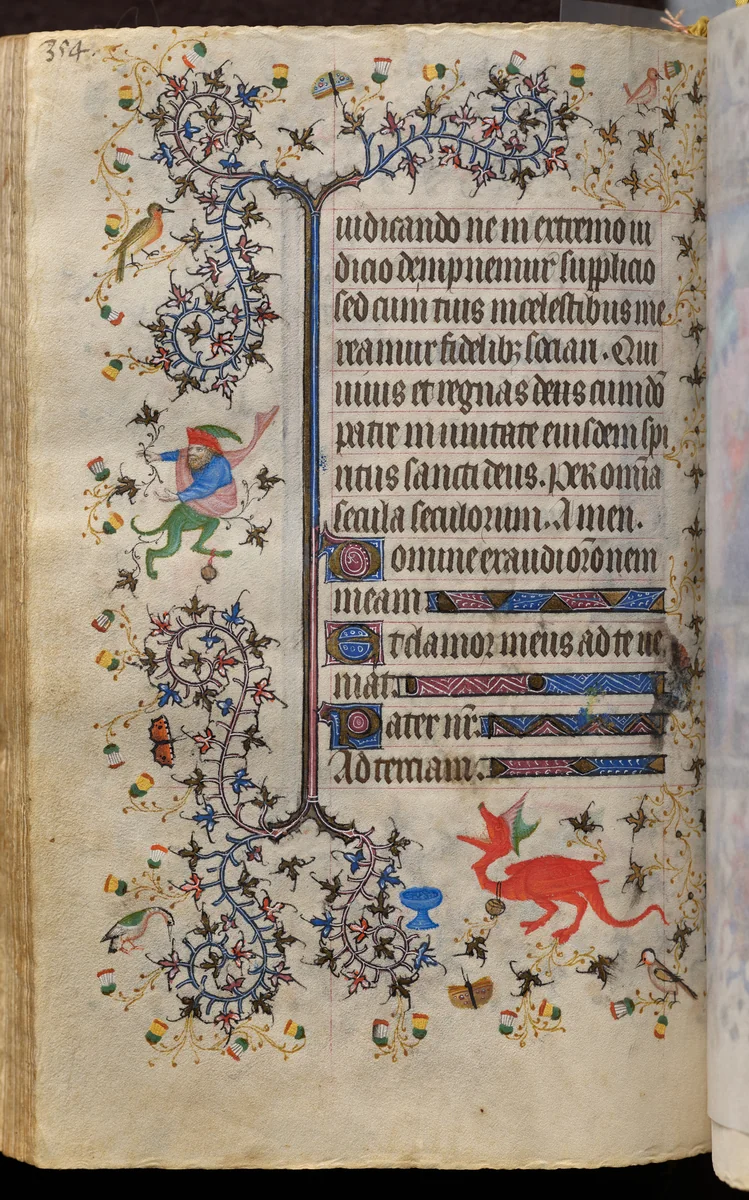 354.
iudicando ne in extremo iu
dicio dempnemur supplicio
sed cum tuis in celestibus me
reamur fidelibꝫ sociari. Qui
viuis et regnas deus cum dō
patre in unitate eiusdem spi
ritus sancti deus. Per om̄ia
secula seculorum. Amen.
Domine exaudi or̄onem
meam
Et clamor meus ad te ue
niat.
Pater nr̄.
Ad terciam.